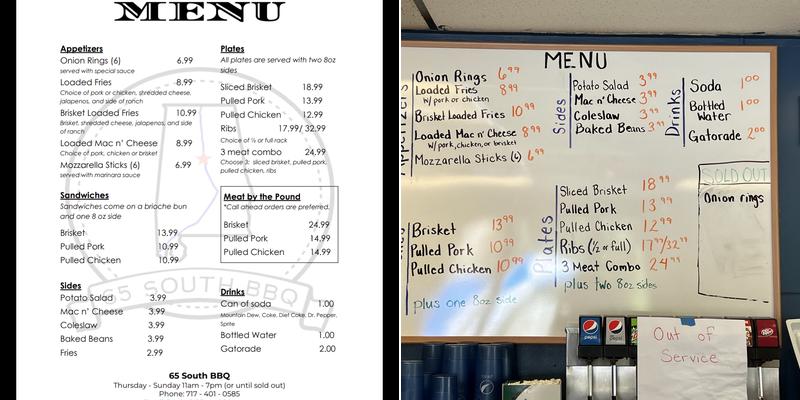 MENU
Appetizers
Onion Rings (6) 6.99
served with special sauce
Loaded Fries 8.99
Choice of pork or chicken, shredded cheese,
jalapenos, and side of ranch
Brisket Loaded Fries 10.99
Brisket, shredded cheese, jalapenos, and side
of ranch
Loaded Mac n' Cheese 8.99
Choice of pork, chicken or brisket
Mozzarella Sticks (6) 6.99
served with marinara sauce
Sandwiches
Sandwiches come on a brioche bun
and one 8 oz side
Brisket 13.99
Pulled Pork 10.99
Pulled Chicken 10.99
Sides
Potato Salad 3.99
Mac n' Cheese 3.99
Coleslaw 3.99
Baked Beans 3.99
Fries 2.99
Plates
All plates are served with two 8oz
sides
Sliced Brisket 18.99
Pulled Pork 13.99
Pulled Chicken 12.99
Ribs 17.99/ 32.99
Choice of ½ or full rack
3 meat combo 24.99
Choose 3: sliced brisket, pulled pork,
pulled chicken, ribs
Meat by the Pound
*Call ahead orders are preferred.
Brisket 24.99
Pulled Pork 14.99
Pulled Chicken 14.99
Drinks
Can of soda 1.00
Mountain Dew, Coke, Diet Coke, Dr. Pepper,
Sprite
Bottled Water 1.00
Gatorade 2.00
65 SOUTH BBQ
65 South BBQ
Thursday - Sunday 11am - 7pm (or until sold out)
Phone: 717 - 401 - 0585
MENU
Onion Rings 6.99
Loaded Fries 8.99
W/ pork or chicken
Brisket Loaded Fries 10.99
Loaded Mac n' Cheese 8.99
W/ pork, chicken, or brisket
Mozzarella Sticks (6) 6.99
Sides
Potato Salad 3.99
Mac n' Cheese 3.99
Coleslaw 3.99
Baked Beans 3.99
Drinks
Soda 1.00
Bottled 1.00
Water
Gatorade 2.00
SOLD OUT
Onion rings
Brisket 13.99
Pulled Pork 10.99
Pulled Chicken 10.99
plus one 8oz side
Plates
Sliced Brisket 18.99
Pulled Pork 13.99
Pulled Chicken 12.99
Ribs (½ or full) 17.99/32.99
3 Meat Combo 24.99
plus two 8oz sides
pepsi
pepsi
Out of
Service